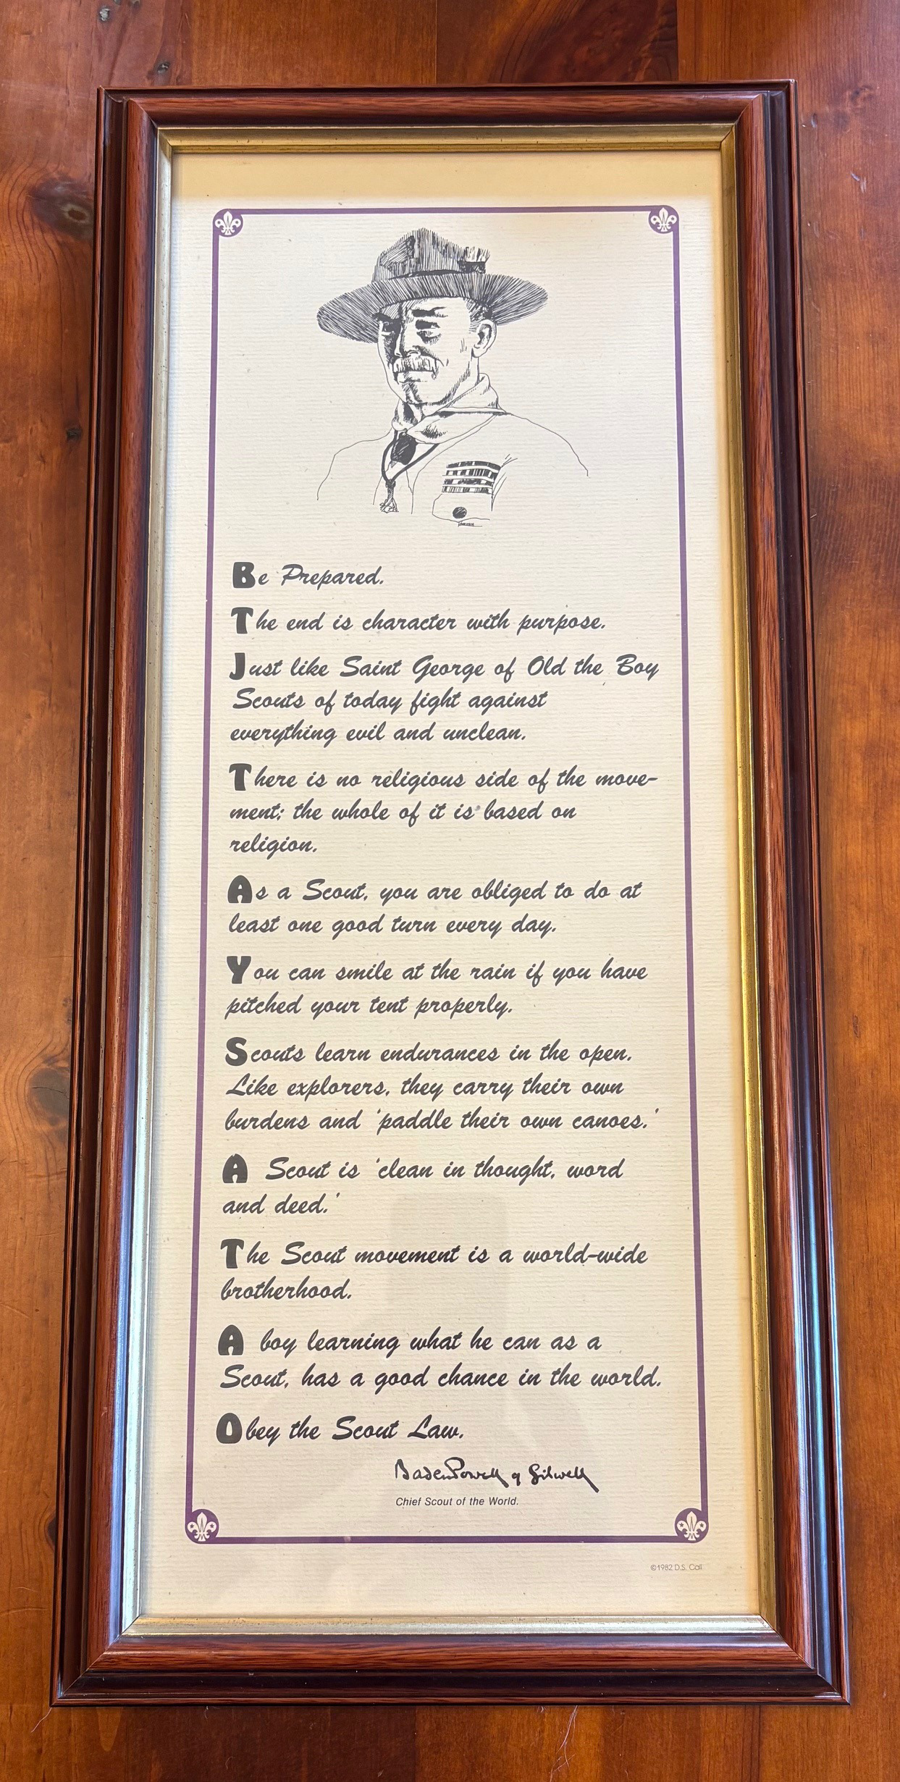 Be Prepared.
The end is character with purpose.
Just like Saint George of Old the Boy
Scouts of today fight against
everything evil and unclean.
There is no religious side of the move-
ment; the whole of it is based on
religion.
As a Scout, you are obliged to do at
least one good turn every day.
You can smile at the rain if you have
pitched your tent properly.
Scouts learn endurances in the open.
Like explorers, they carry their own
burdens and 'paddle their own canoes.'
A Scout is 'clean in thought, word
and deed.'
The Scout movement is a world-wide
brotherhood.
A boy learning what he can as a
Scout, has a good chance in the world.
Obey the Scout Law.
Baden Powell of Gilwell
Chief Scout of the World.
©1982 D.S. Call